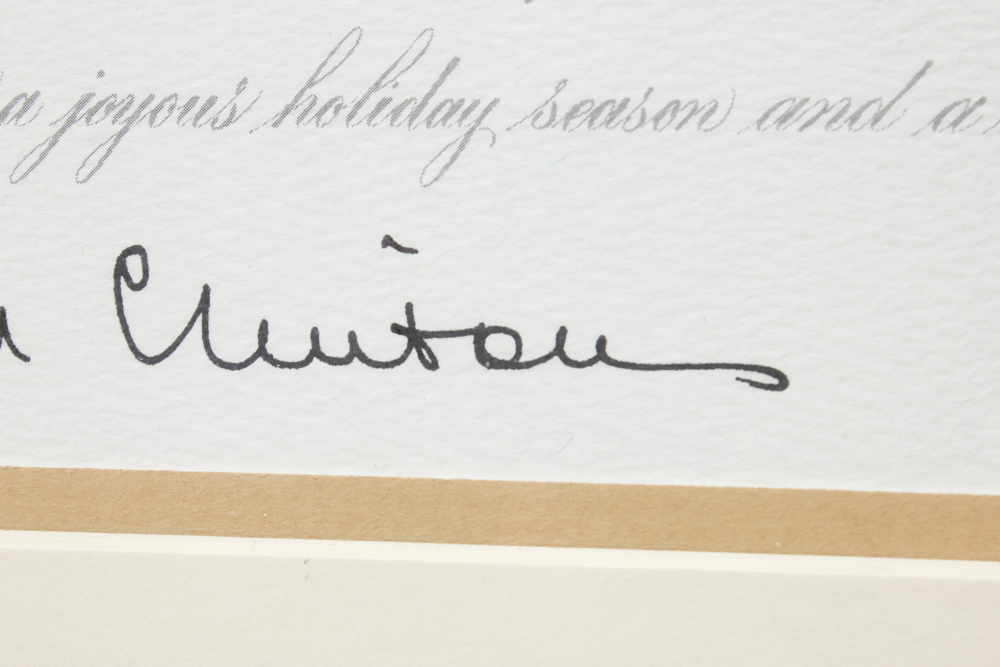 a joyous holiday season and a
Clinton